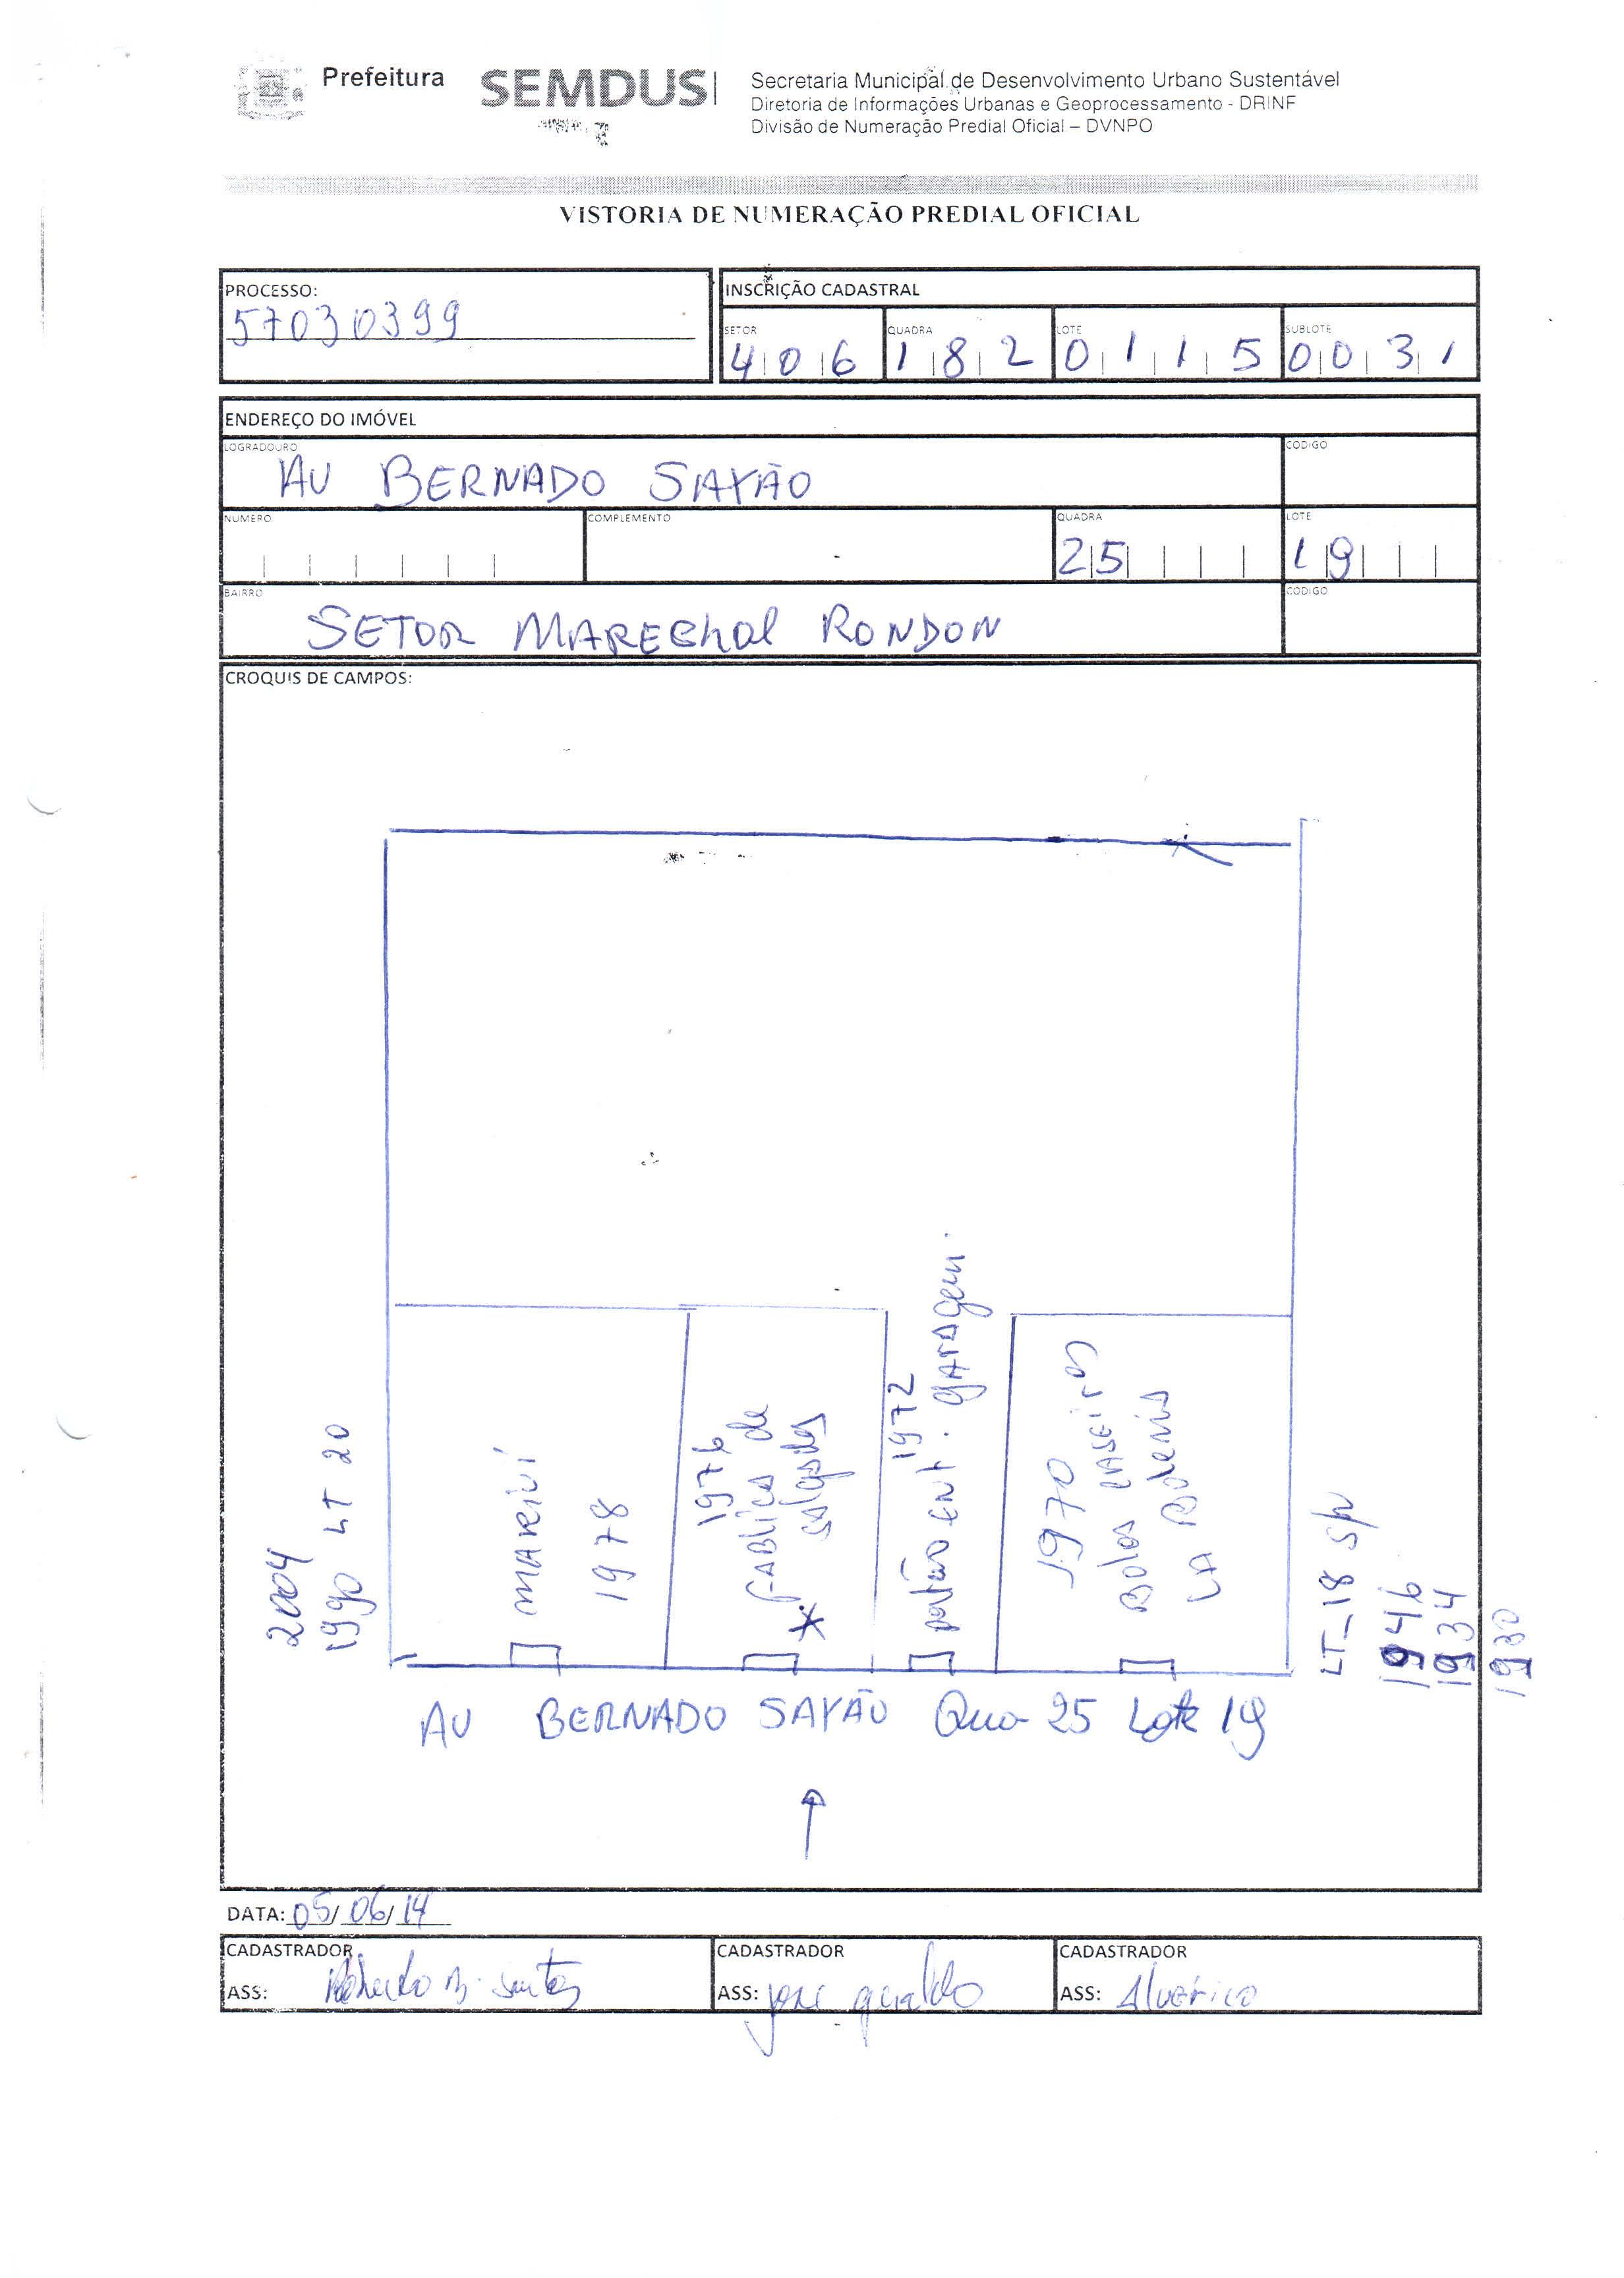 Prefeitura
SEMDUS
Secretaria Municipal de Desenvolvimento Urbano Sustentável
Diretoria de Informações Urbanas e Geoprocessamento - DRINF
Divisão de Numeração Predial Oficial – DVNPO
VISTORIA DE NUMERAÇÃO PREDIAL OFICIAL
PROCESSO:
57030399
INSCRIÇÃO CADASTRAL
SETOR QUADRA LOTE SUBLOTE
406 182 0115 0031
ENDEREÇO DO IMÓVEL
LOGRADOURO CODIGO
AV BERNADO SAYÃO
NUMERO COMPLEMENTO QUADRA LOTE
25 19
BAIRRO CODIGO
SETOR MARECHAL RONDON
CROQUIS DE CAMPOS:
2004
1990 LT 20
1978
1976
FABRICA de
salgados
1972
portão ENT. garagem.
1970
Bolos caseiros
LT_18 S/N
1946
1934
1930
AV BERNADO SAYÃO Qua 25 Lote 19
DATA: 05/06/14
CADASTRADOR CADASTRADOR CADASTRADOR
ASS: ASS: jose geraldo ASS: